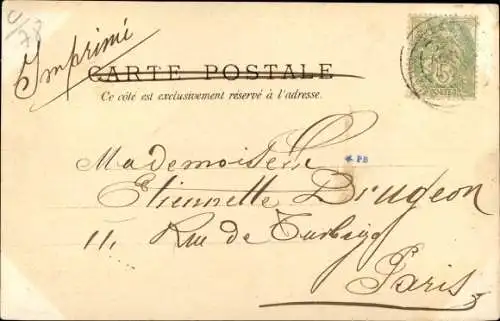 U/78
Imprimé
CARTE POSTALE
Ce côté est exclusivement réservé à l'adresse.
* PB
Mademoiselle
Etiennette Drugeon
11, Rue de Turbigo
Paris
5